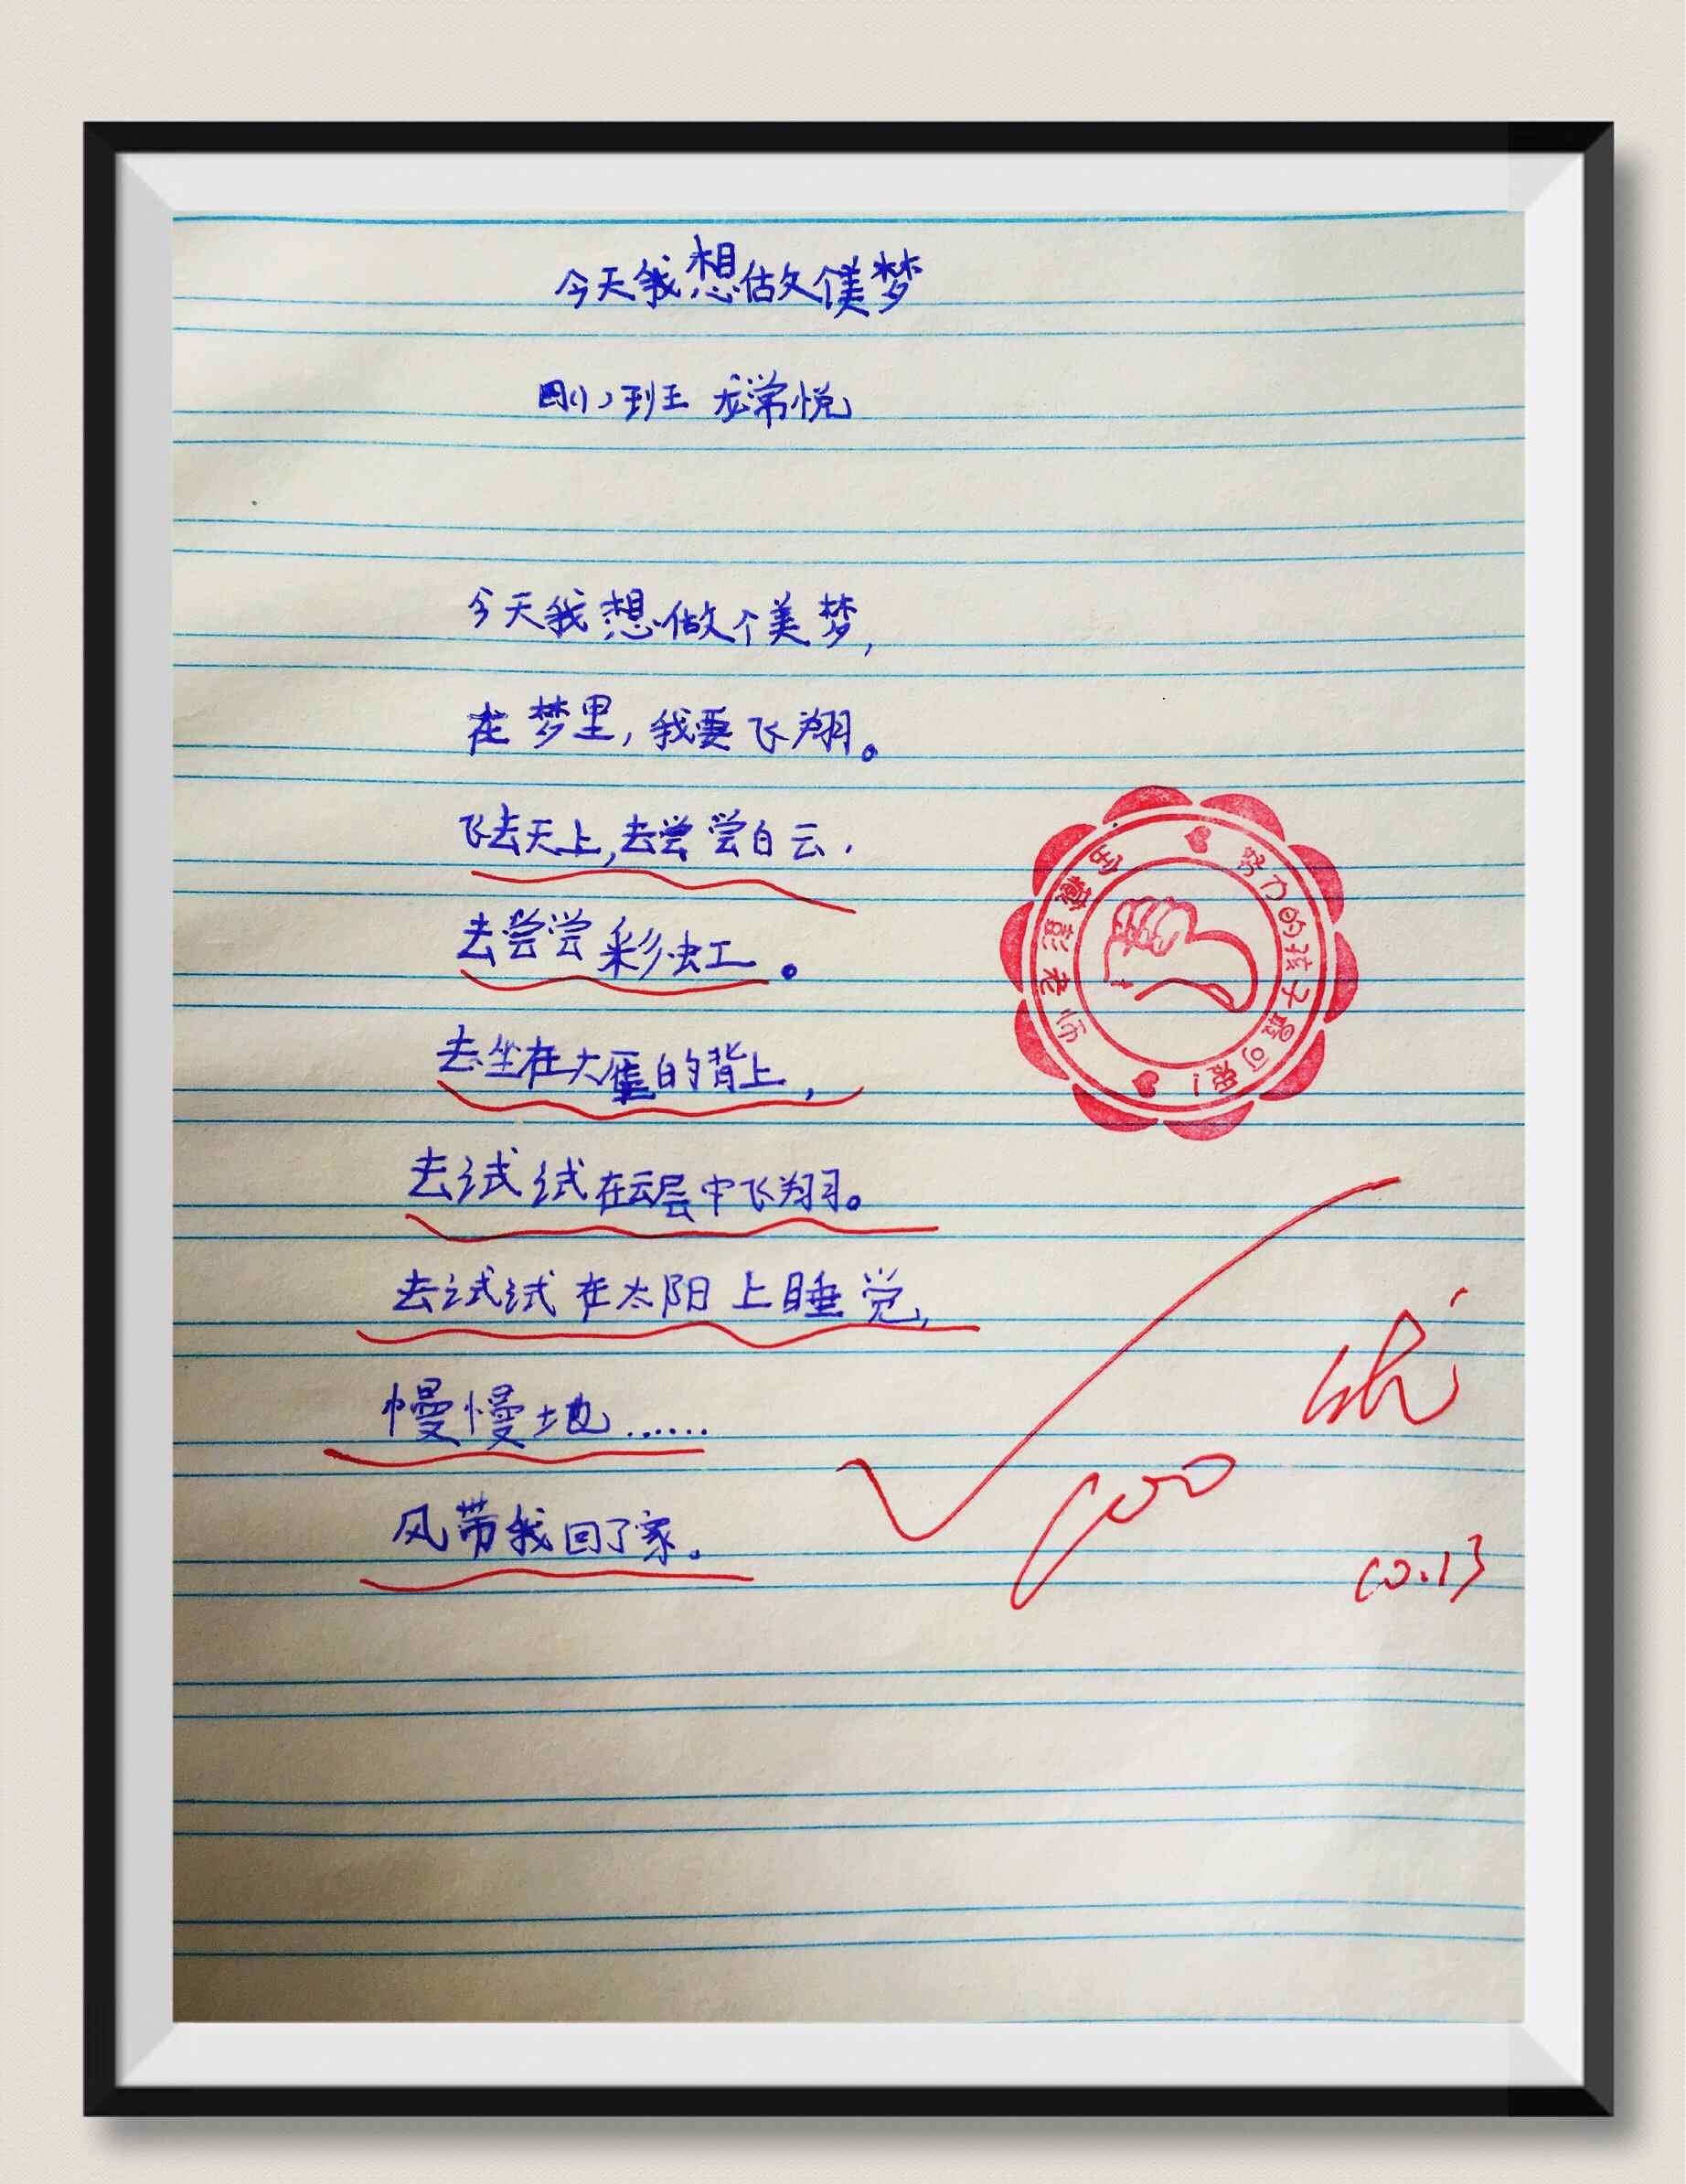 今天我想做个美梦
四(1)班 龙常悦
今天我想做个美梦,
在梦里,我要飞翔。
飞去天上,去尝尝白云,
去尝尝彩虹。
去坐在大雁的背上,
去试试在云层中飞翔。
去试试在太阳上睡觉,
慢慢地……
风带我回了家。
努力的孩子最可爱!
彭老师
100
10.13